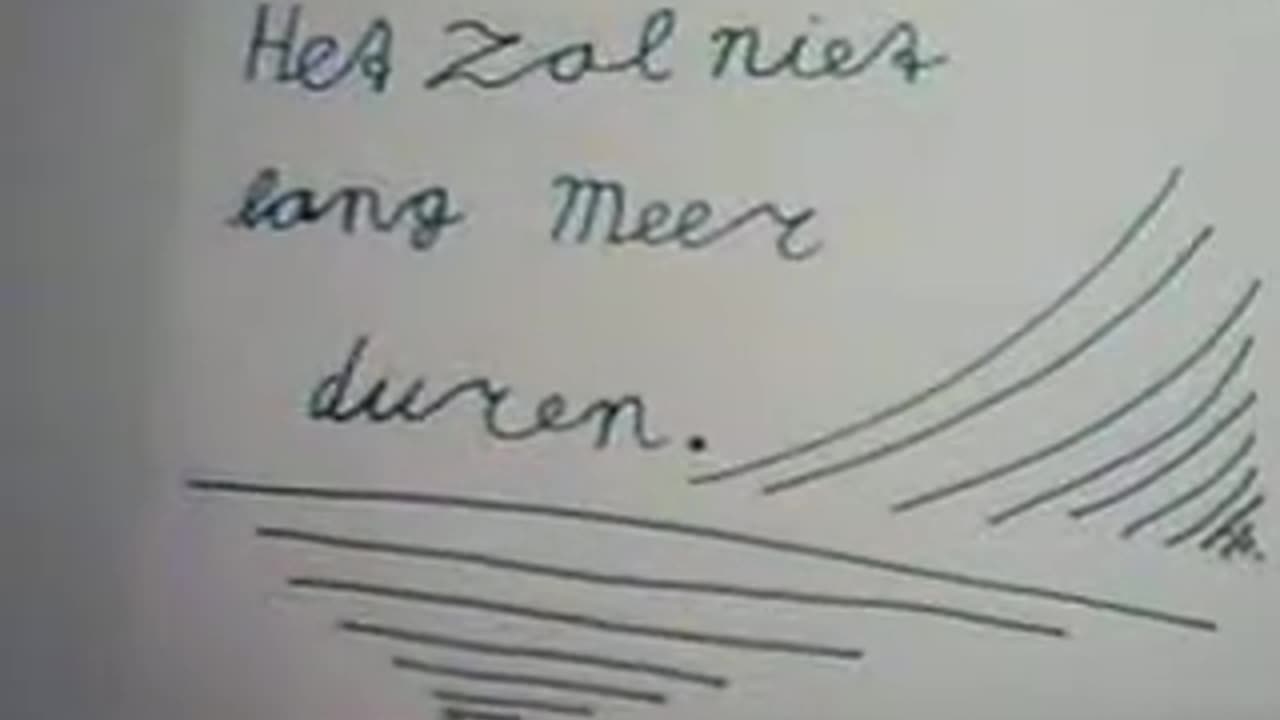 Het zal niet
lang meer
duren.